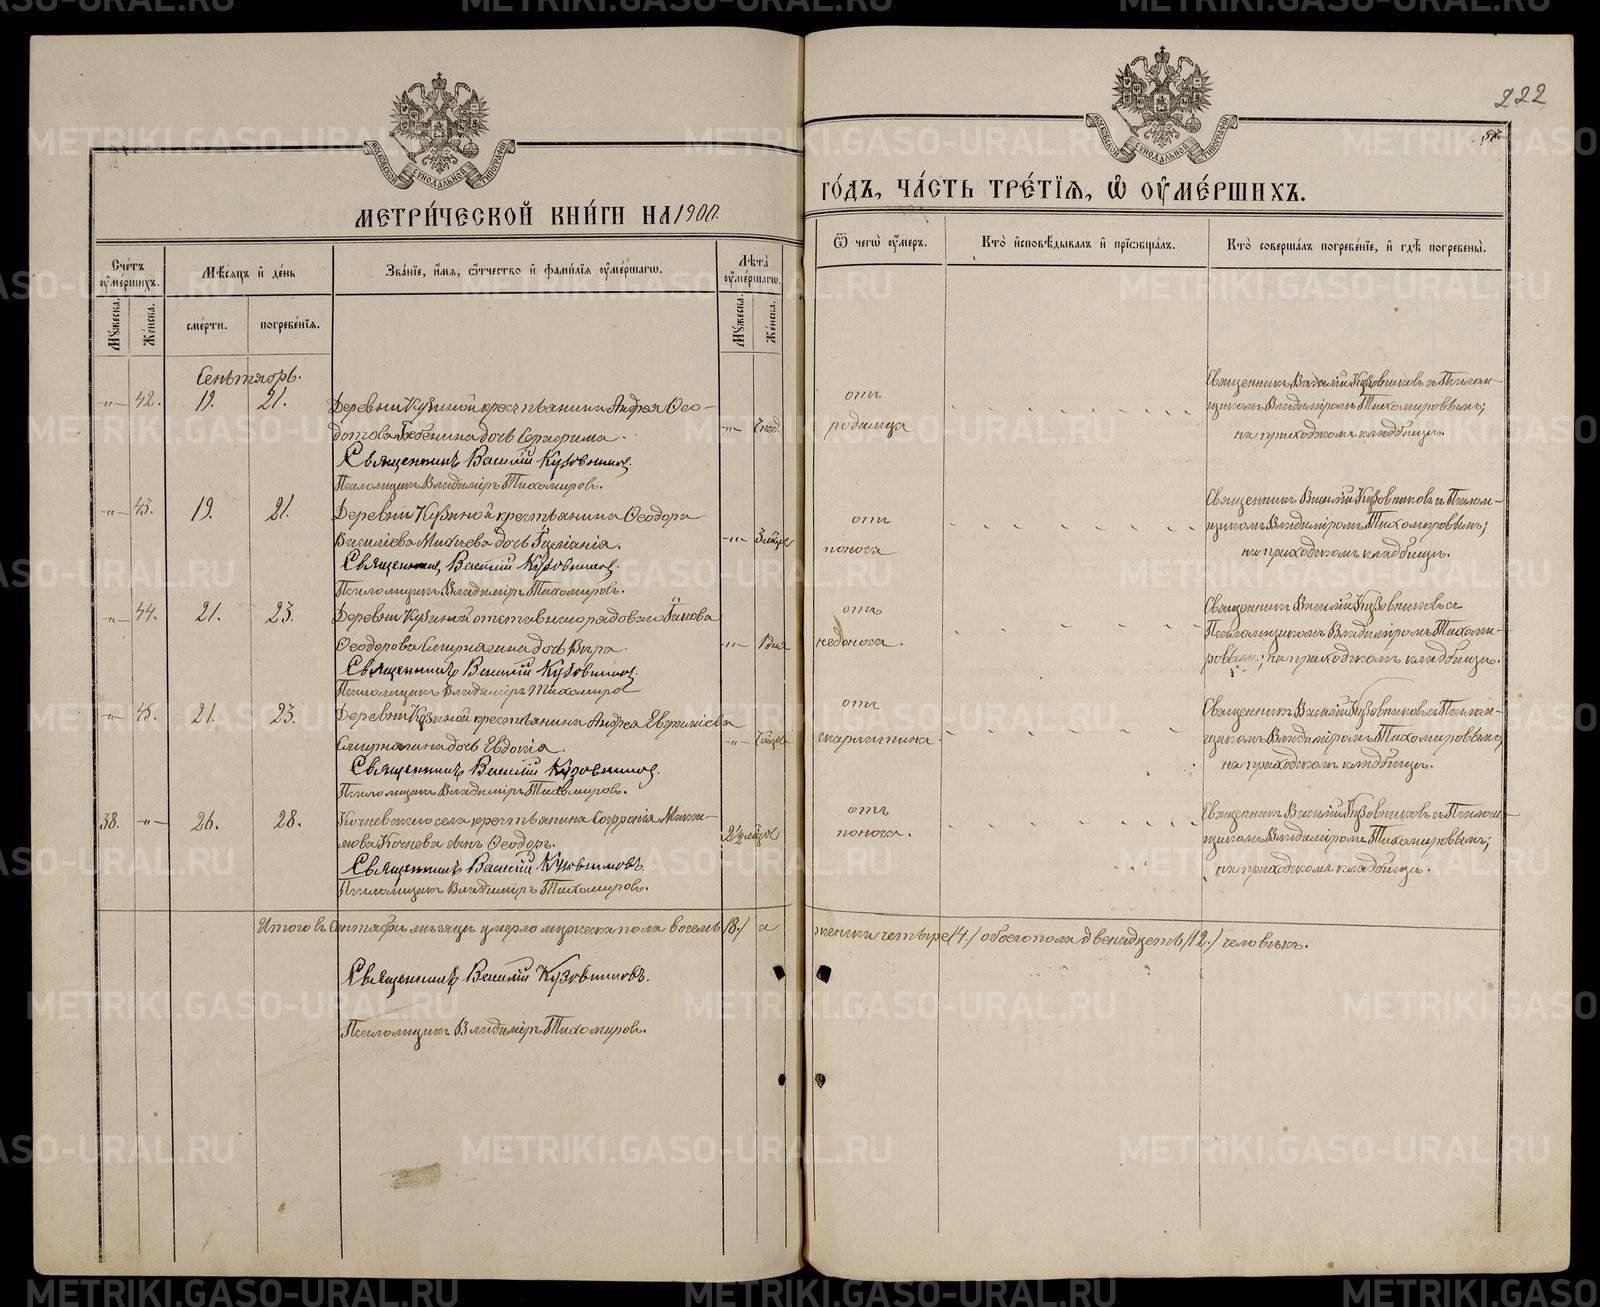 222
МОСКОВСКОЙ СУНОДАЛЬНОЙ ТИПОГРАФИИ
МОСКОВСКОЙ СУНОДАЛЬНОЙ ТИПОГРАФИИ
МЕТРИ́ЧЕСКОЙ КНИ́ГИ НА 1900
ГО́ДЪ, ЧА́СТЬ ТРЕ́ТІѦ, Ѡ҆ ОУ҆МЕ́РШИХЪ.
Сче́тъ оу҆ме́ршихъ.
Мѣ́сѧцъ и҆ де́нь
Зва́нїе, и҆́мѧ, ѻ҆́тчество и҆ фами́лїѧ оу҆ме́ршагѡ.
Лѣ́та оу҆ме́ршагѡ.
Ѿ чегѡ̀ оу҆́меръ.
Кто̀ и҆сповѣ́дывалъ и҆ прїѡбща́лъ.
Кто̀ соверша́лъ погребе́нїе, и҆ гдѣ̀ погребены̀.
Мꙋ́жеска.
Же́нска.
сме́рти.
погребе́нїѧ.
Мꙋ́жеска.
Же́нска.
Сентябрь.
-"- 42. 19. 21. Деревни Кузиной крестьянина Андрея Ѳео-
дотова дочь
Священникъ Василій Кузовниковъ.
Псаломщикъ Владиміръ Тихомировъ.
-"- нед.
отъ
родимца
Священникъ Василій Кузовниковъ съ Псалом-
щикомъ Владиміромъ Тихомировымъ;
на приходскомъ кладбищѣ.
-"- 43. 19. 21. Деревни Кузиной крестьянина Ѳеодора
Василіева дочь
Священникъ Василій Кузовниковъ.
Псаломщикъ Владиміръ Тихомировъ.
-"- мѣсяца
отъ
поноса
Священникъ Василій Кузовниковъ съ Псалом-
щикомъ Владиміромъ Тихомировымъ;
на приходскомъ кладбищѣ.
-"- 44. 21. 23. Деревни Кузиной отставного рядового Іакова
Ѳеодорова Смирнягина дочь Вѣра.
Священникъ Василій Кузовниковъ.
Псаломщикъ Владиміръ Тихомировъ
-"- дня
отъ
недоноса.
Священникъ Василій Кузовниковъ съ
Псаломщикомъ Владиміромъ Тихоми-
ровымъ; на приходскомъ кладбищѣ.
-"- 45. 21. 23. Деревни Кузиной крестьянина Андрея Евфиміева
Смирнягина дочь Евдокія.
Священникъ Василій Кузовниковъ.
Псаломщикъ Владиміръ Тихомировъ.
-"- мѣсяцовъ
отъ
скарлатина.
Священникъ Василій Кузовниковъ съ Псалом-
щикомъ Владиміромъ Тихомировымъ;
на приходскомъ кладбищѣ.
38. -"- 26. 28. Кочневскаго села крестьянина Софронія
Кочнева сынъ Ѳеодоръ.
Священникъ Василій Кузовниковъ.
Псаломщикъ Владиміръ Тихомировъ.
2½ мѣсяца
отъ
поноса.
Священникъ Василій Кузовниковъ съ Псалом-
щикомъ Владиміромъ Тихомировымъ;
на приходскомъ кладбищѣ.
Итого въ Сентябрѣ мѣсяцѣ умерло мужеска пола восемь /8./ а
женска четыре /4./ обоего пола двенадцать /12./ человѣкъ.
Священникъ Василій Кузовниковъ.
Псаломщикъ Владиміръ Тихомировъ.
METRIKI.GASO-URAL.RU